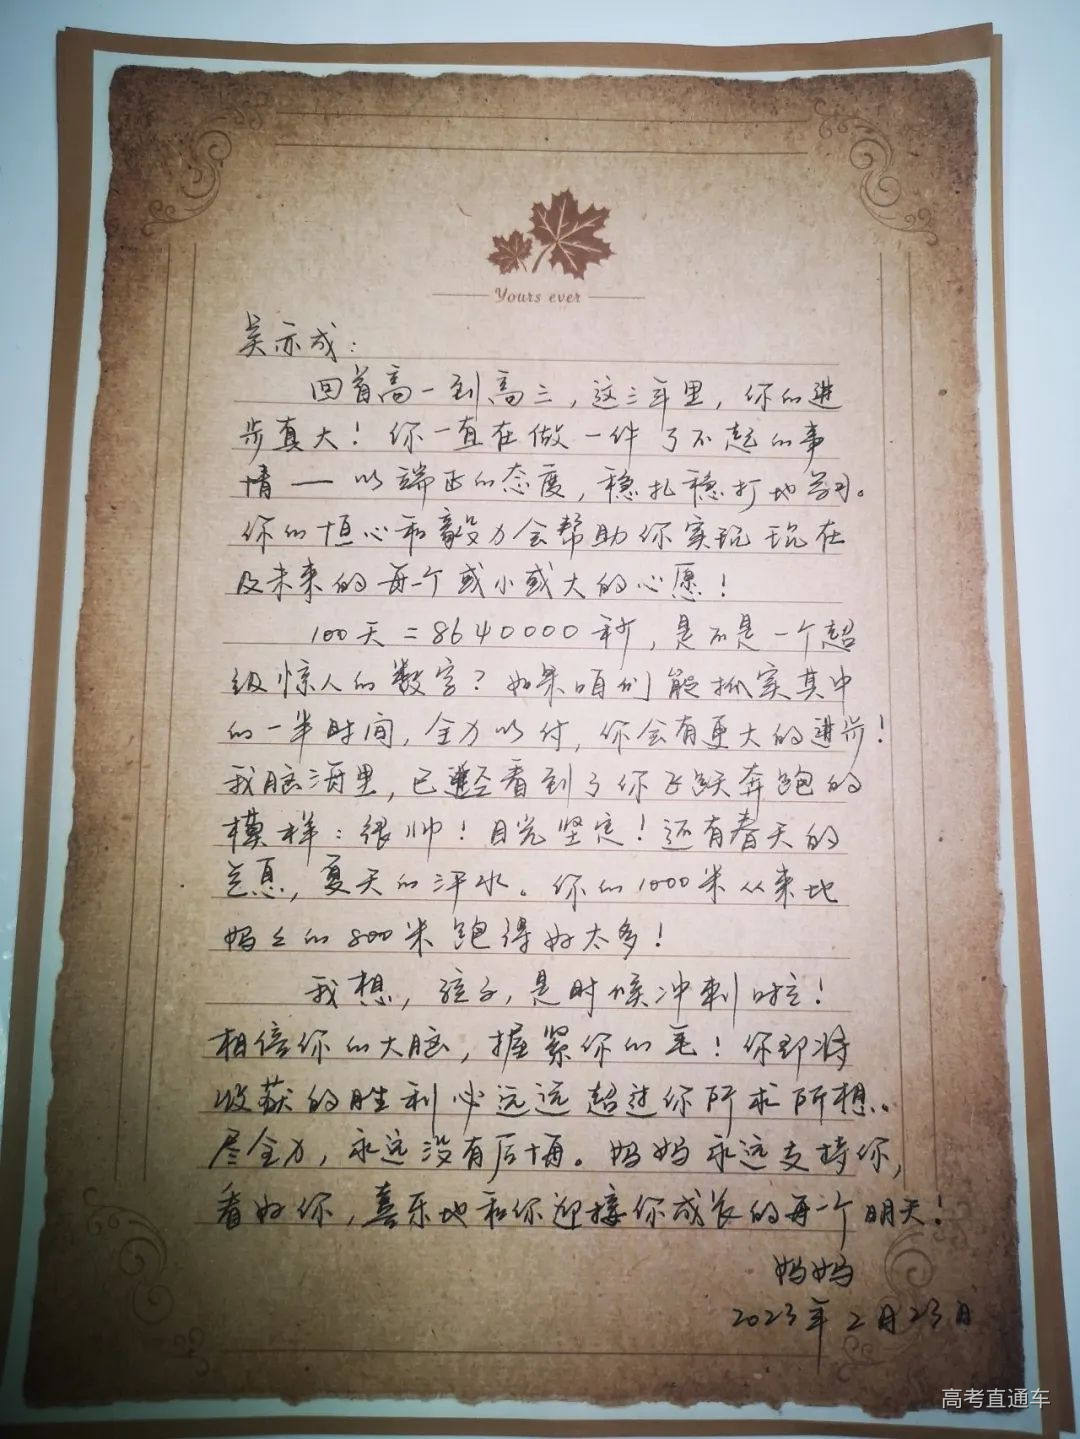 Yours ever
吴亦成：
回首高一到高三，这三年里，你的进
步真大！你一直在做一件了不起的事
情——以端正的态度，稳扎稳打地学习。
你的恒心和毅力会帮助你实现现在
及未来的每一个或小或大的心愿！
100天=8640000秒，是不是一个超
级惊人的数字？如果咱们能抓实其中
的一半时间，全力以付，你会有更大的进步！
我脑海里，已经看到了你飞跃奔跑的
模样：很帅！目光坚定！还有春天的
气息，夏天的汗水。你的1000米从来比
妈妈的800米跑得好太多！
我想，孩子，是时候冲刺啦！
相信你的大脑，握紧你的笔！你即将
收获的胜利必远远超过你所求所想。
尽全力，永远没有后悔。妈妈永远支持你，
看好你，喜乐地和你迎接你成长的每一个明天！
妈妈
2023年2月23日
高考直通车